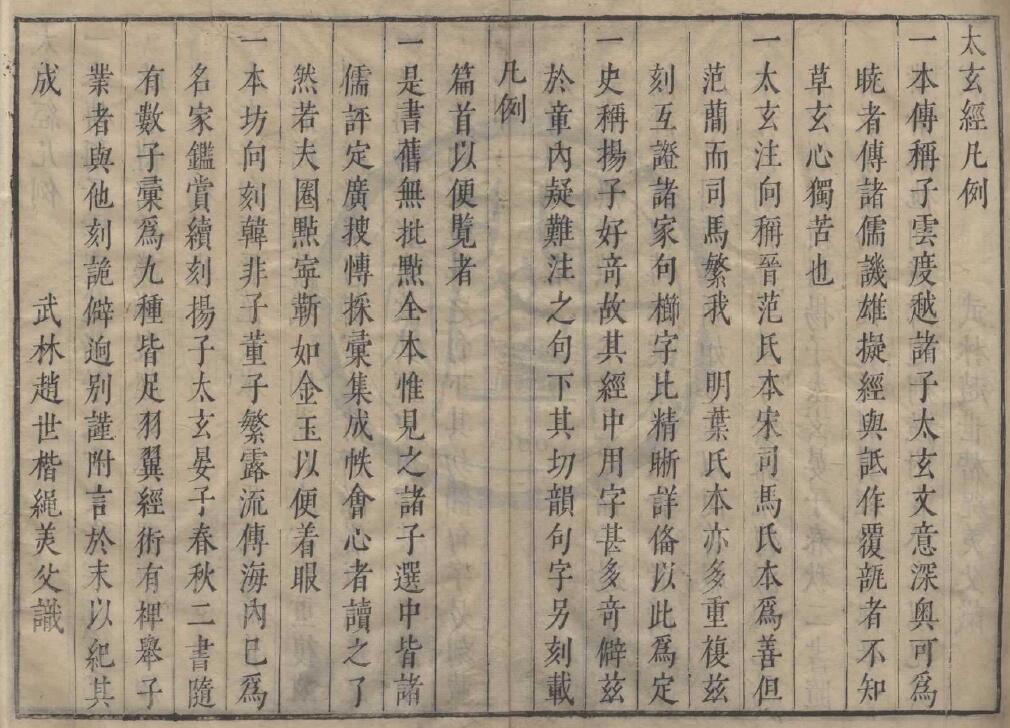 太玄經凡例
一本傳稱子雲度越諸子太玄文意深奧可爲
曉者傳諸儒譏雄擬經與詆作覆瓿者不知
草玄心獨苦也
一太玄注向稱晉范氏本宋司馬氏本爲善但
范蕳而司馬繁我 明葉氏本亦多重複茲
刻互證諸家句櫛字比精晰詳俻以此爲定
一史稱揚子好竒故其經中用字甚多竒僻茲
於章內疑難注之句下其切韻句字另刻載
凡例
篇首以便覽者
一是書舊無批點全本惟見之諸子選中皆諸
儒評定廣搜慱採彙集成帙會心者讀之了
然若夫圈點寧靳如金玉以便着眼
一本坊向刻韓非子董子繁露流傳海內已爲
名家鑑賞續刻揚子太玄晏子春秋二書隨
有數子彙爲九種皆足羽翼經術有裨舉子
業者與他刻詭僻逈別謹附言於末以紀其
成 武林趙世楷繩美父識